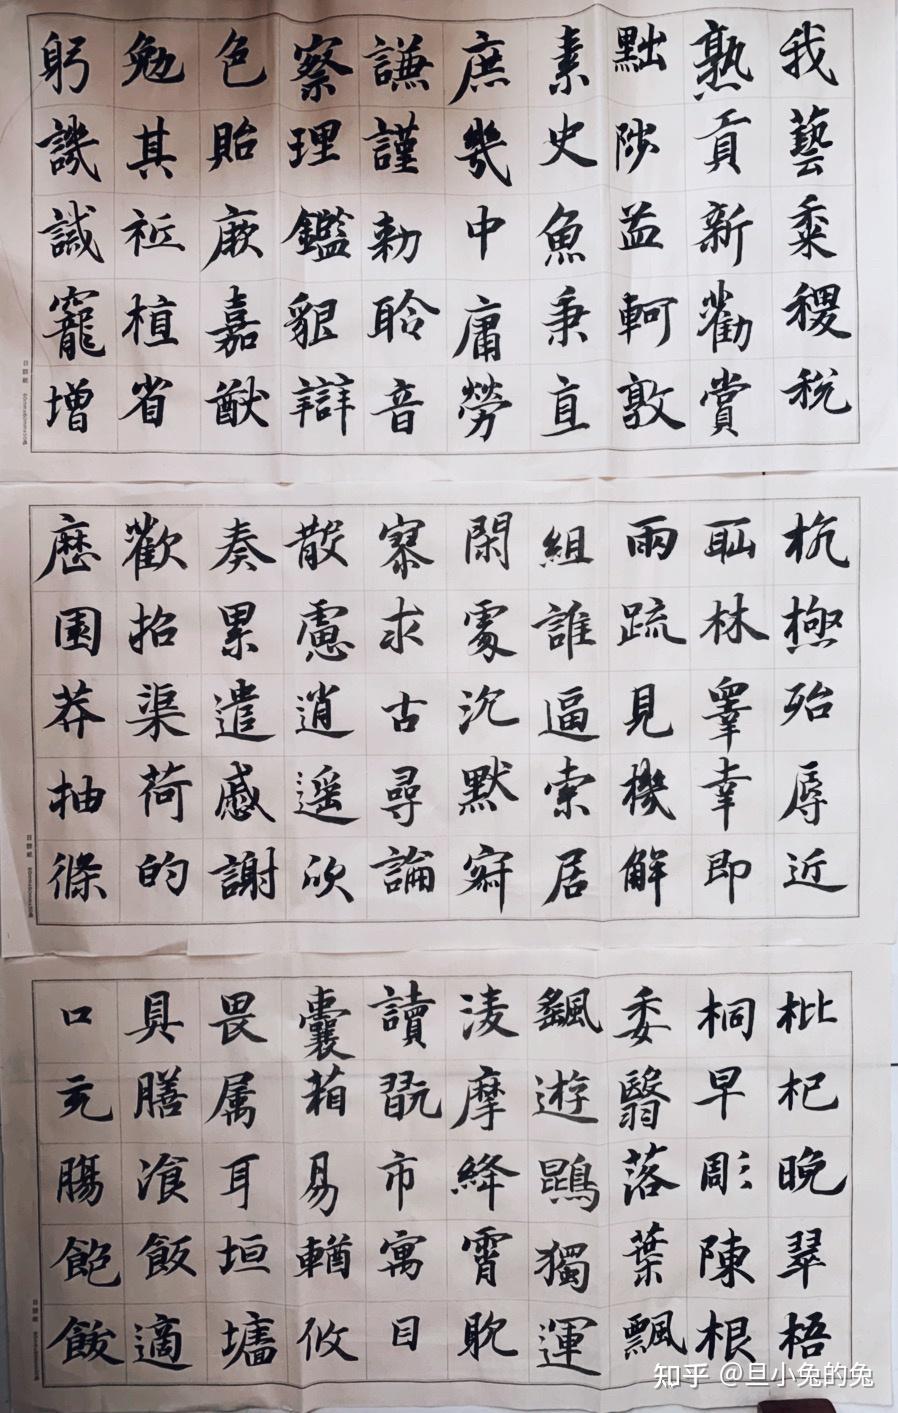 我藝黍稷稅
熟貢新勸賞
黜陟孟軻敦
素史魚秉直
庶幾中庸勞
謙謹勅聆音
察理鑑貌辯
色貽厥嘉猷
勉其祗植省
躬譏誡寵增
抗極殆辱近
恥林睾幸即
兩疏見機解
組誰逼索居
閑處沉默寂
寥求古尋論
散慮逍遙欣
奏累遣慼謝
歡招渠荷的
歷園莽抽條
枇杷晚翠梧
桐早彫陳根
委翳落葉飄
颻遊鵾獨運
淩摩絳霄耽
讀翫市寓目
囊箱易輶攸
畏属耳垣墻
具膳飡飯適
口充腸飽飫
知乎 @旦小兔的兔